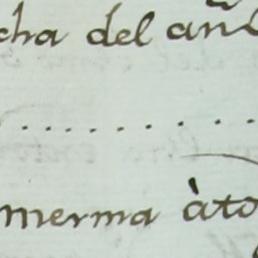 cha del añ
. . . . . . . . .
merma àto